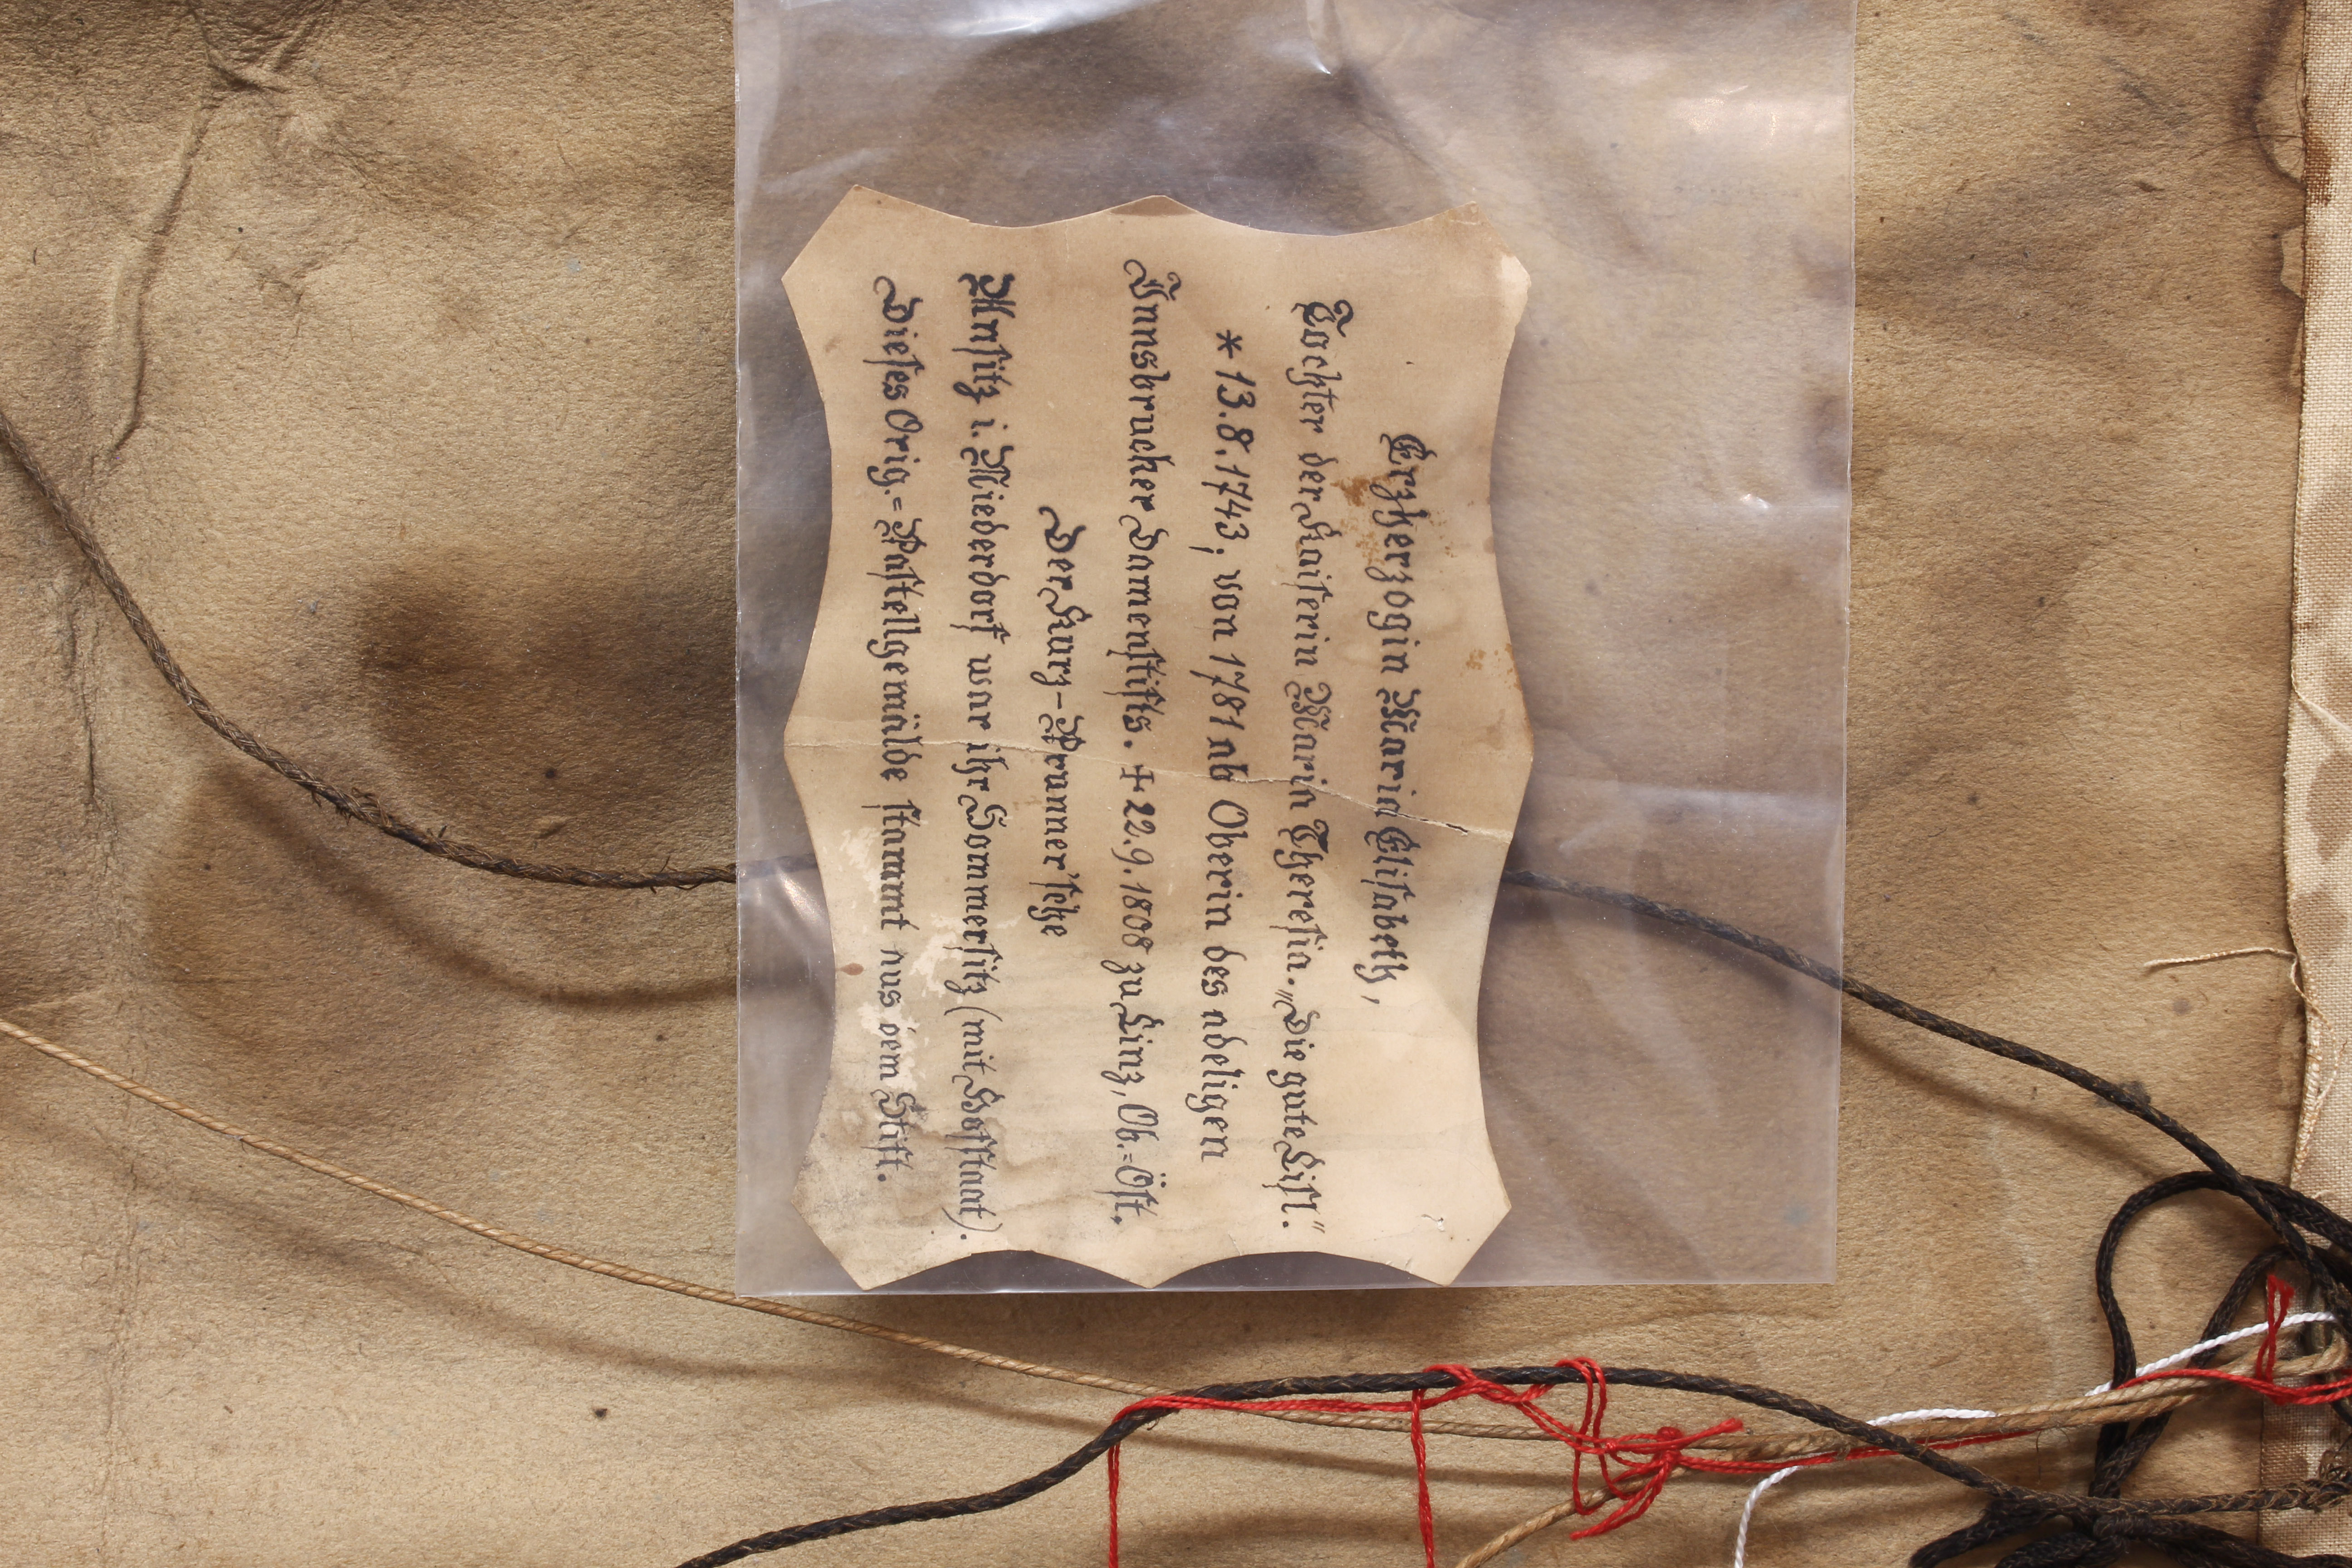 Erzherzogin Maria Elisabeth,
Tochter der Kaiserin Maria Theresia. „Die gute Lisl."
* 13.8.1743; von 1781 ab Oberin des adeligen
Innsbrucker Damenstifts. + 22.9.1808 zu Linz, Ob.=Öst.
Der Kurz-Prunner'sche
Ansitz i. Niederdorf war ihr Sommersitz (mit Hofstaat).
Dieses Orig.=Pastellgemälde stammt aus dem Stift.